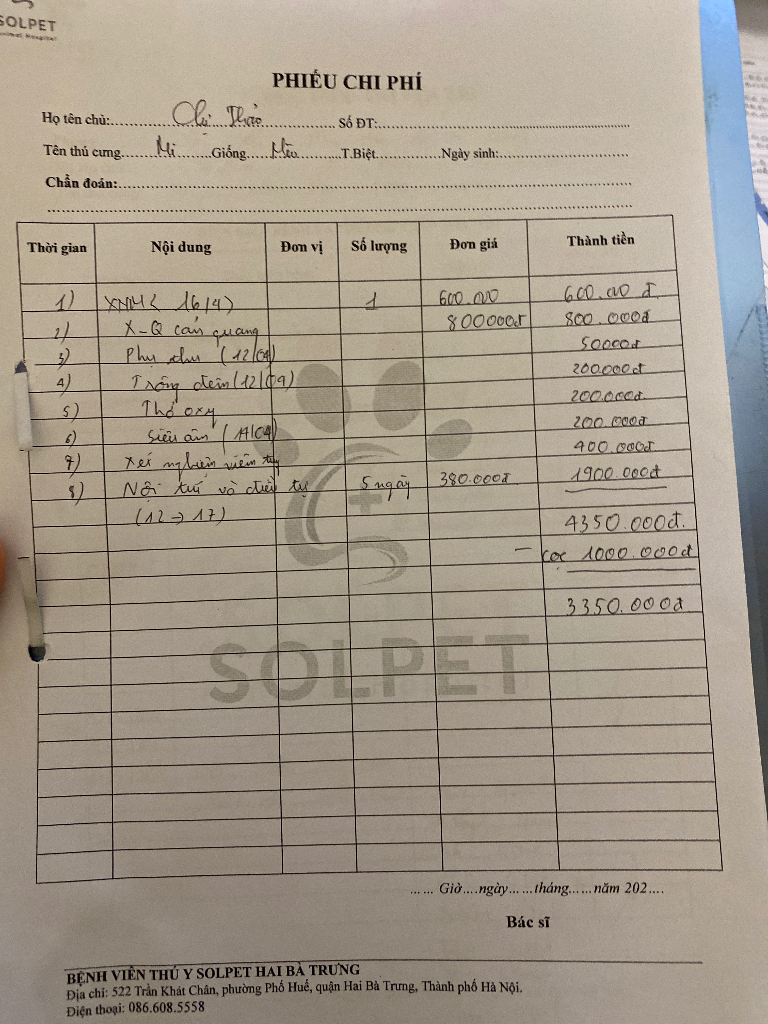 SOLPET
Animal Hospital
PHIẾU CHI PHÍ
Họ tên chủ:............ Chị Thảo ............ Số ĐT:............
Tên thú cưng...... Mi ......Giống...... Mèo ......T.Biệt............Ngày sinh:............
Chẩn đoán:............
Thời gian Nội dung Đơn vị Số lượng Đơn giá Thành tiền
1) XNM ( 16/4) 1 600.000 600.000 đ
2) X-Q cản quang 800000đ 800.000đ
3) Phụ thu (12/04) 50000đ
4) Trông đêm (12/04) 200.000đ
5) Thở oxy 200.000đ
6) Siêu âm ( /04) 200.000đ
7) Xét nghiệm viêm tụy 400.000đ
8) Nội trú và điều trị 5 ngày 380.000đ 1900.000đ
(12 → 17) 4350.000đ.
– cọc 1000.000đ
3350.000đ
SOLPET
...... Giờ....ngày......tháng......năm 202....
Bác sĩ
BỆNH VIỆN THÚ Y SOLPET HAI BÀ TRƯNG
Địa chỉ: 522 Trần Khát Chân, phường Phố Huế, quận Hai Bà Trưng, Thành phố Hà Nội.
Điện thoại: 086.608.5558